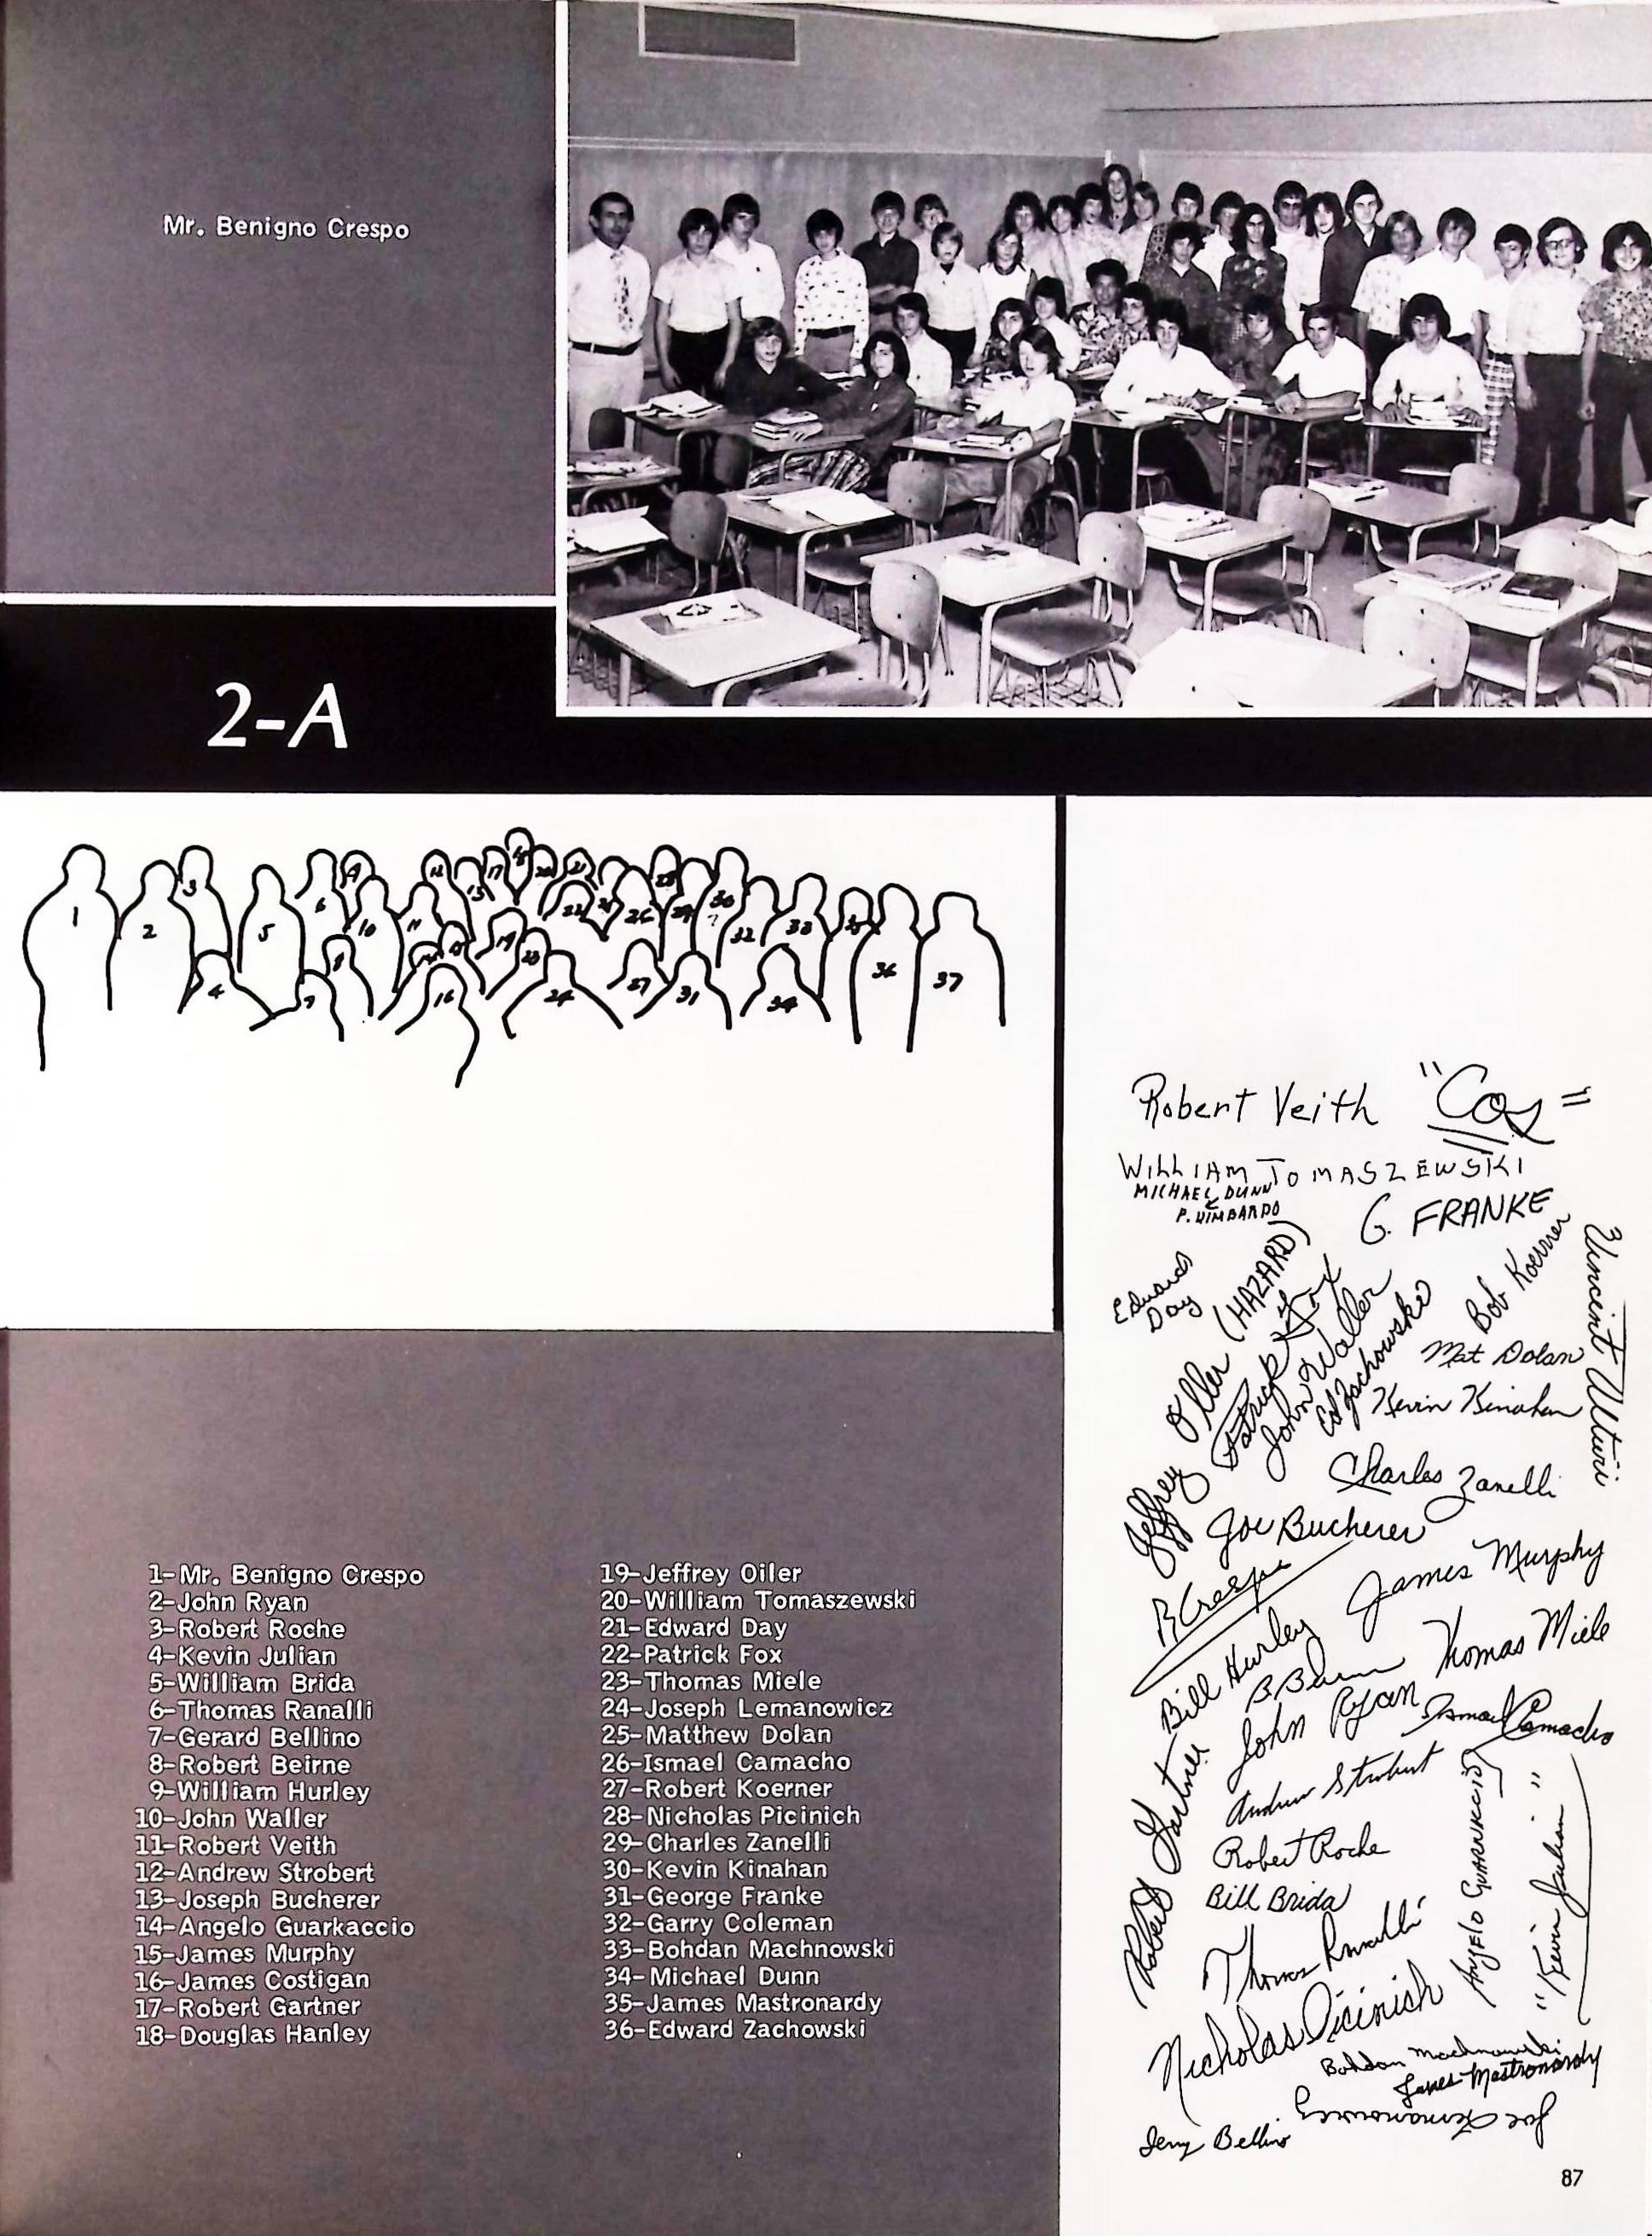 Mr. Benigno Crespo
2-A
1 2 3 4 5 6 7 8 9 10 11 12 13 16 17 18 19 20 21 22 24 26 27 28 29 30 31 32 33 34 35 36 37
1-Mr. Benigno Crespo
2-John Ryan
3-Robert Roche
4-Kevin Julian
5-William Brida
6-Thomas Ranalli
7-Gerard Bellino
8-Robert Beirne
9-William Hurley
10-John Waller
11-Robert Veith
12-Andrew Strobert
13-Joseph Bucherer
14-Angelo Guarkaccio
15-James Murphy
16-James Costigan
17-Robert Gartner
18-Douglas Hanley
19-Jeffrey Oiler
20-William Tomaszewski
21-Edward Day
22-Patrick Fox
23-Thomas Miele
24-Joseph Lemanowicz
25-Matthew Dolan
26-Ismael Camacho
27-Robert Koerner
28-Nicholas Picinich
29-Charles Zanelli
30-Kevin Kinahan
31-George Franke
32-Garry Coleman
33-Bohdan Machnowski
34-Michael Dunn
35-James Mastronardy
36-Edward Zachowski
Robert Veith "Cos"
WILLIAM TOMASZEWSKI
MICHAEL DUNN
G. FRANKE
Edward Day
Jeffrey Oller (HAZARD)
Patrick Fox
John Waller
Ed Zachowski
Bob Koerner
Mat Dolan
Kevin Kinahan
Charles Zanelli
Joe Bucherer
B Crespo
James Murphy
Bill Hurley
Thomas Miele
John Ryan
Ismael Camacho
Robert Gartner
Andrew Strobert
Robert Roche
Bill Brida
Thomas Ranalli
Nicholas Picinich
"Kevin Julian"
Bohdan Machnowski
James Mastronardy
Joe Lemanowicz
Jerry Bellino
87